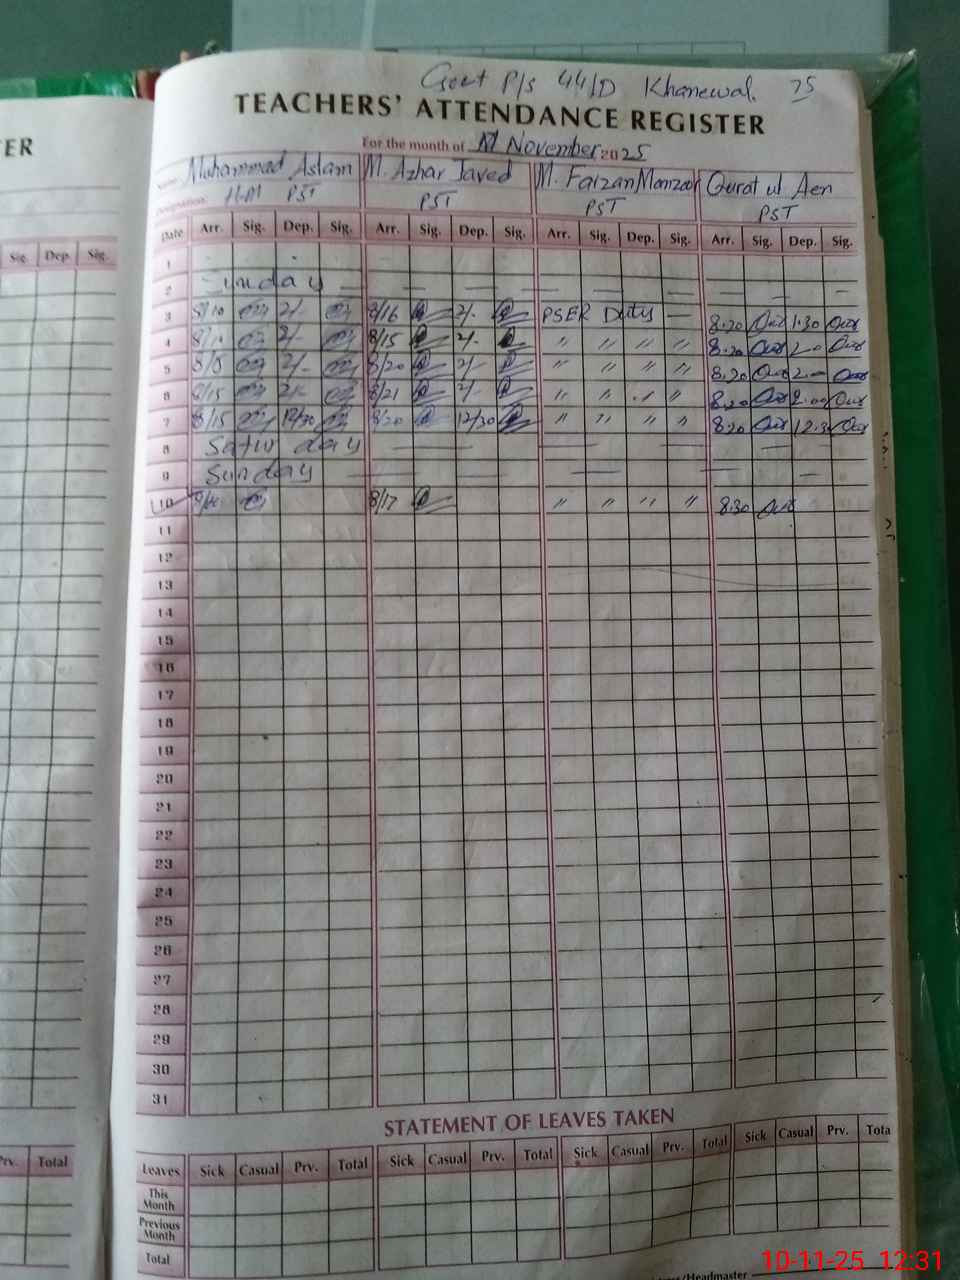 Govt P/s 44/D Khanewal. 25
TEACHERS' ATTENDANCE REGISTER
For the month of November 2025
Name Muhammad Aslam M. Azhar Javed M. Faizan Manzoor Qurat ul Aen
Designation H.M PST PST PST PST
Date Arr. Sig. Dep. Sig. Arr. Sig. Dep. Sig. Arr. Sig. Dep. Sig. Arr. Sig. Dep. Sig.
1
2 Sunday
3 8/10 2/- 8/16 2/- PSER Duty 8.20 1.30
4 8/10 2/- 8/15 2/- " " " " 8.20
5 2/- 8/20 2/- " " " " 8.20 2.00
6 8/15 2/- 8/21 2/- " " " " 8.20 2.00
7 8/15 12/30 8/20 12/30 " " " " 8.20 12.30
8 Saturday
9 Sunday
10 8/17 " " " " 8.30
11
12
13
14
15
16
17
18
19
20
21
22
23
24
25
26
27
28
29
30
31
STATEMENT OF LEAVES TAKEN
Leaves Sick Casual Prv. Total Sick Casual Prv. Total Sick Casual Prv. Total Sick Casual Prv. Tota
This Month
Previous Month
Total
/Headmaster
ER
Sig. Dep. Sig.
Prv. Total
10-11-25 12:31